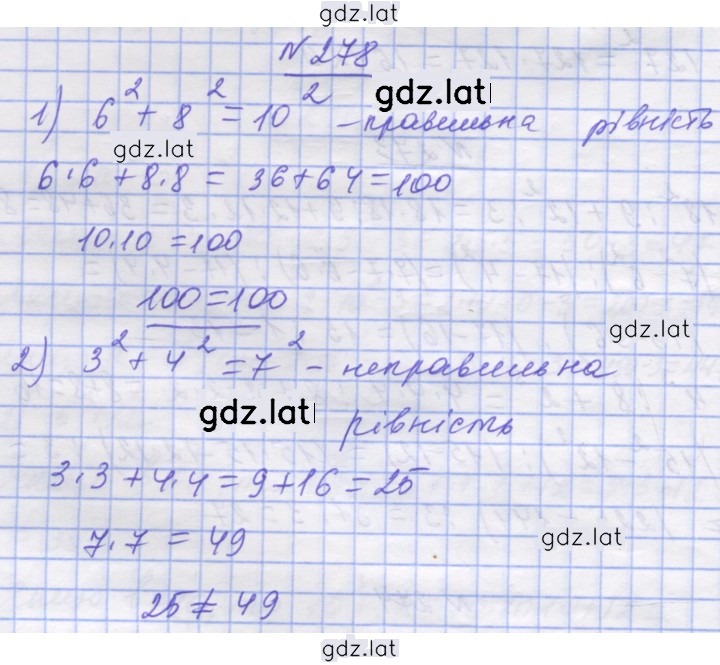 gdz.lat
N 278
gdz.lat
1) 6² + 8² = 10² - правильна рівність
gdz.lat
6·6 + 8·8 = 36+64=100
10·10 =100
100=100
gdz.lat
2) 3² + 4² = 7² - неправильна
gdz.lat
рівність
3·3 + 4·4 = 9+16 = 25
7·7 = 49
gdz.lat
25 ≠ 49
gdz.lat